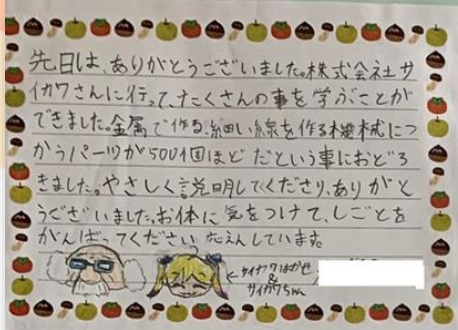 先日は、ありがとうございました。株式会社サ
イカワさんに行って、たくさんの事を学ぶことが
できました。金属で作る、細い線を作る機械につ
かうパーツが500個ほどだという事におどろ
きました。やさしく説明してくださり、ありがと
うございました。お体に気をつけて、しごとを
がんばってください。応えんしています。
←サイカワはかせ
&
サイカワちゃん